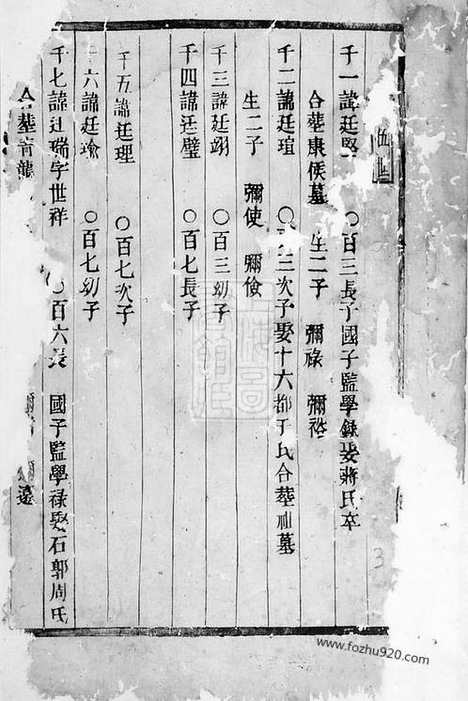 伍世
千一諱廷堅 〇百三長子國子監學錄娶蔣氏卒
合葬康侯墓 生二子 彌祿 彌
千二諱廷瑄 〇百三次子娶十六都于氏合葬祖墓
生二子 彌使 彌儉
千三諱廷翊 〇百三幼子
千四諱廷璧 〇百七長子
千五諱廷理 〇百七次子
千六諱廷瑜 〇百七幼子
千七諱廷瑞字世祥 〇百六長 國子監學祿娶石郭周氏
合葬
3
www.fozhu920.com